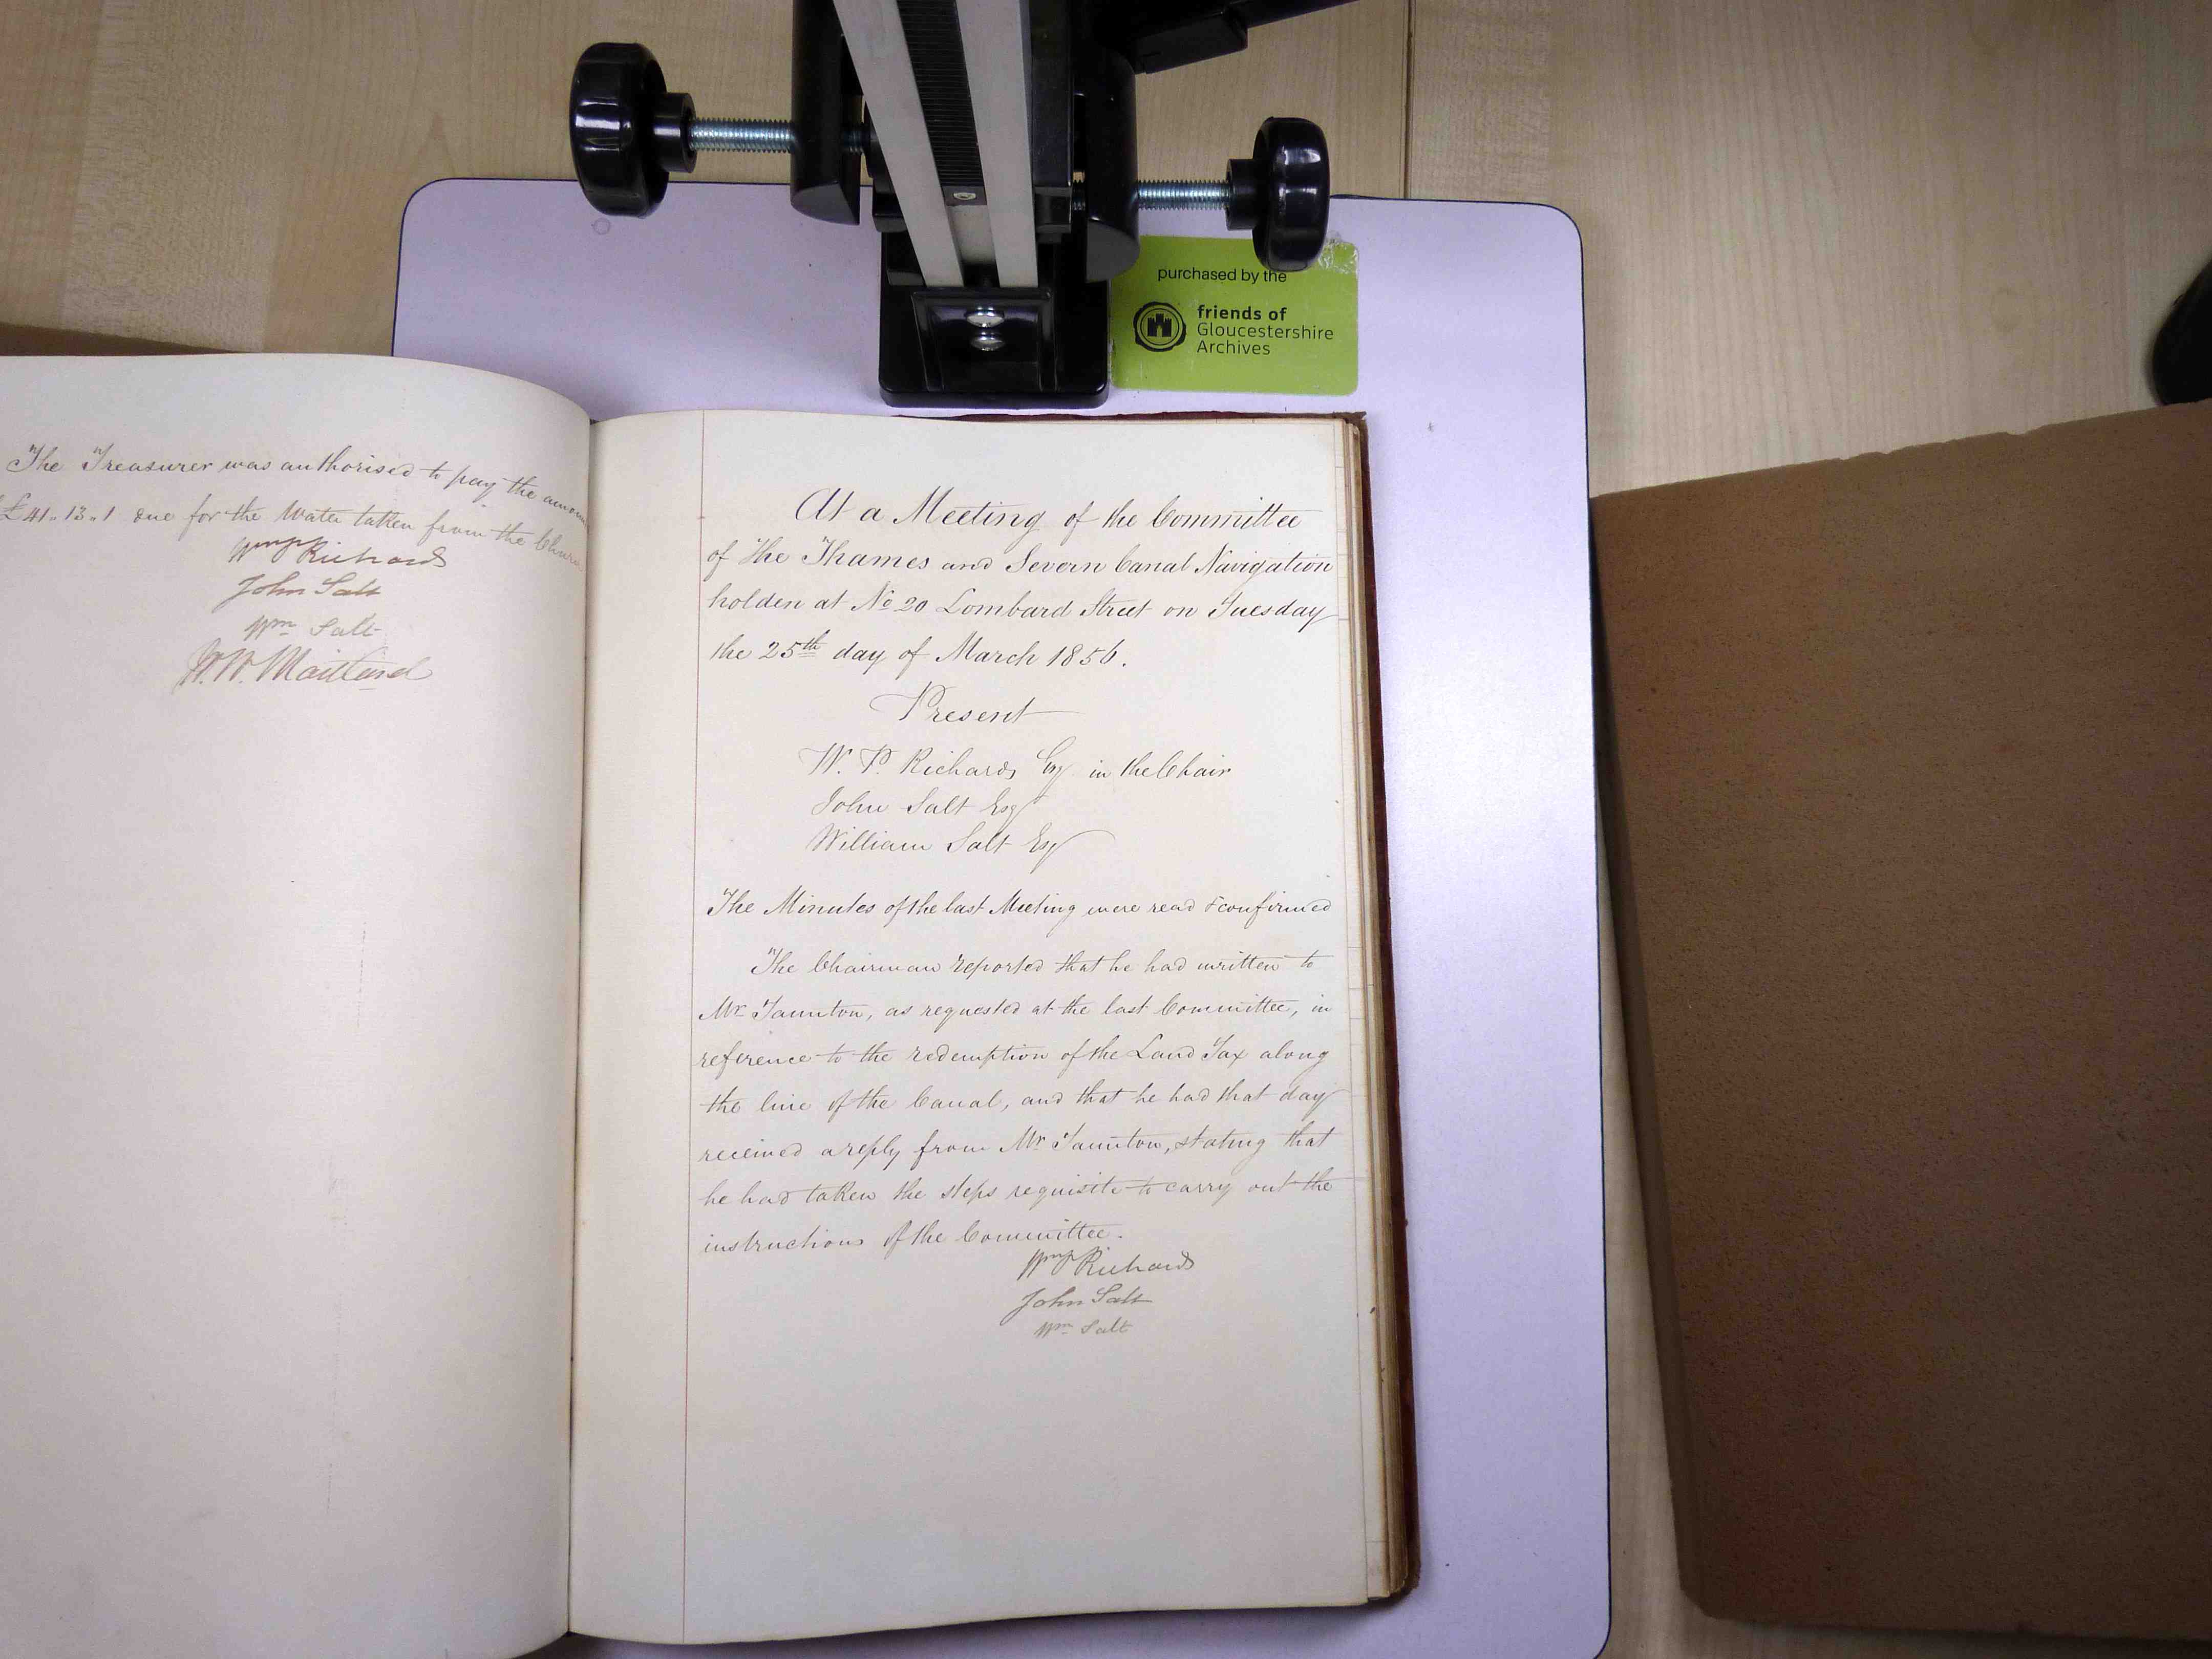 purchased by the
friends of
Gloucestershire
Archives
The Treasurer was authorised to pay the amoun
£41.. 13.. 1 due for the Water taken from the Churn
Wm P Richards
John Salt
Wm Salt
W. W. Maitland
At a Meeting of the Committee
of the Thames and Severn Canal Navigation
holden at No 20 Lombard Street on Tuesday
the 25th day of March 1856.
Present
W. P. Richards Esq in the Chair
John Salt Esq
William Salt Esq
The Minutes of the last Meeting were read & confirmed
The Chairman reported that he had written to
Mr Taunton, as requested at the last Committee, in
reference to the redemption of the Land Tax along
the line of the Canal, and that he had that day
received a reply from Mr Taunton, stating that
he had taken the steps requisite to carry out the
instructions of the Committee.
Wm P Richards
John Salt
Wm Salt